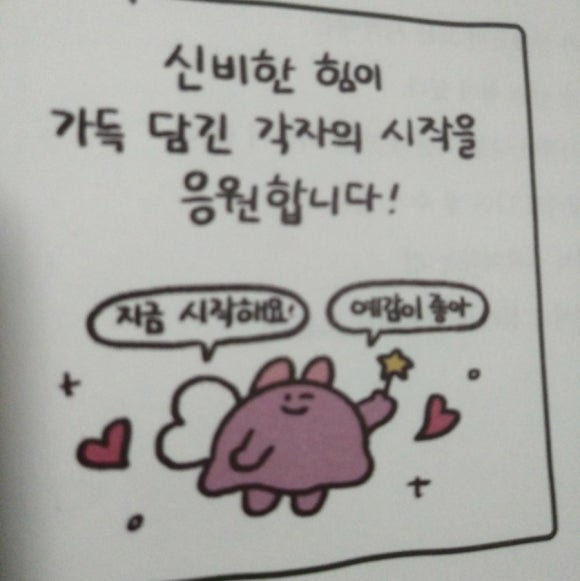 신비한 힘이
가득 담긴 각자의 시작을
응원합니다!
지금 시작해요!
예감이 좋아